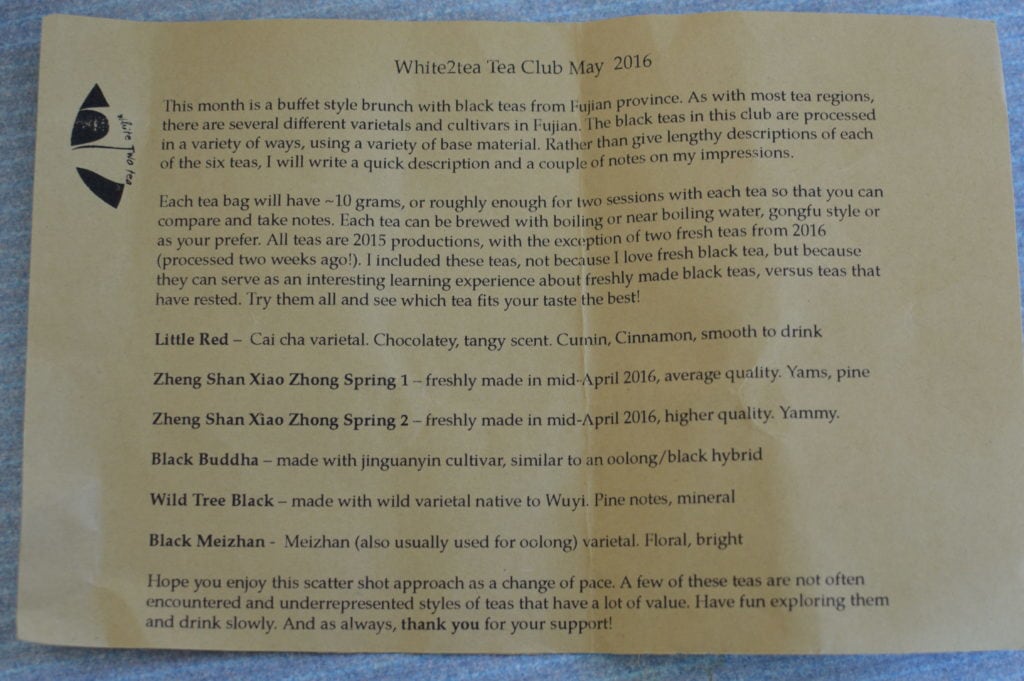 White2tea Tea Club May 2016
White Two tea
This month is a buffet style brunch with black teas from Fujian province. As with most tea regions,
there are several different varietals and cultivars in Fujian. The black teas in this club are processed
in a variety of ways, using a variety of base material. Rather than give lengthy descriptions of each
of the six teas, I will write a quick description and a couple of notes on my impressions.
Each tea bag will have ~10 grams, or roughly enough for two sessions with each tea so that you can
compare and take notes. Each tea can be brewed with boiling or near boiling water, gongfu style or
as your prefer. All teas are 2015 productions, with the exception of two fresh teas from 2016
(processed two weeks ago!). I included these teas, not because I love fresh black tea, but because
they can serve as an interesting learning experience about freshly made black teas, versus teas that
have rested. Try them all and see which tea fits your taste the best!
Little Red – Cai cha varietal. Chocolatey, tangy scent. Cumin, Cinnamon, smooth to drink
Zheng Shan Xiao Zhong Spring 1 – freshly made in mid-April 2016, average quality. Yams, pine
Zheng Shan Xiao Zhong Spring 2 – freshly made in mid-April 2016, higher quality. Yammy.
Black Buddha – made with jinguanyin cultivar, similar to an oolong/black hybrid
Wild Tree Black – made with wild varietal native to Wuyi. Pine notes, mineral
Black Meizhan - Meizhan (also usually used for oolong) varietal. Floral, bright
Hope you enjoy this scatter shot approach as a change of pace. A few of these teas are not often
encountered and underrepresented styles of teas that have a lot of value. Have fun exploring them
and drink slowly. And as always, thank you for your support!